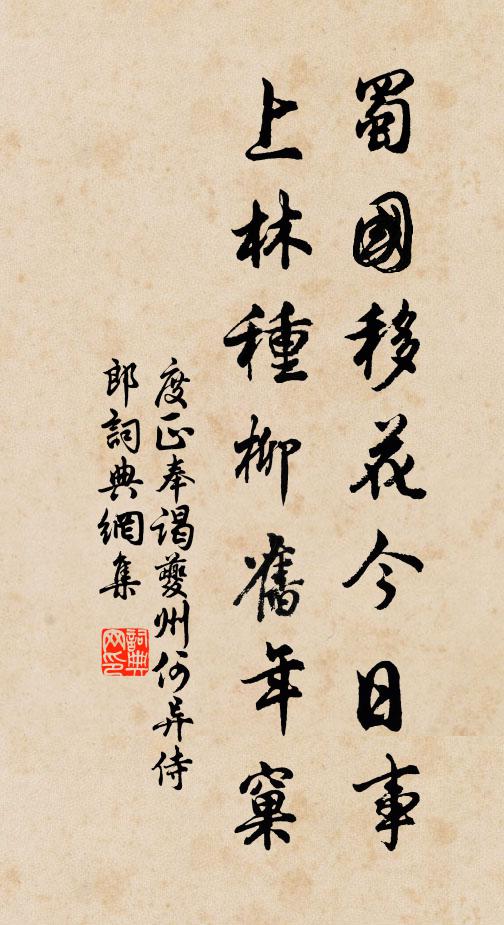 蜀國移花今日事
上林種柳舊年窠
度正奉謁夔州何异侍
郎詞典網集
詞典
网印